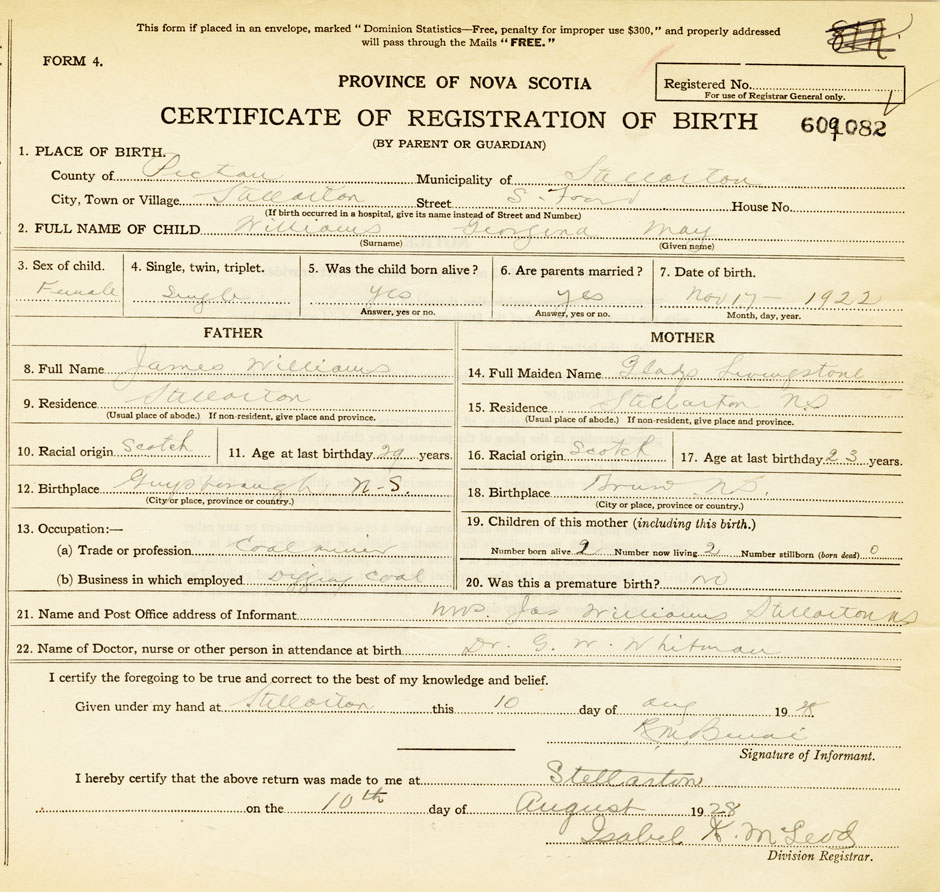 This form if placed in an envelope, marked "Dominion Statistics—Free, penalty for improper use $300," and properly addressed
will pass through the Mails "FREE."
FORM 4.
PROVINCE OF NOVA SCOTIA
Registered No.
For use of Registrar General only.
CERTIFICATE OF REGISTRATION OF BIRTH
(BY PARENT OR GUARDIAN)
1. PLACE OF BIRTH.
County of Pictou Municipality of Stellarton
City, Town or Village Stellarton Street S. Foord House No.
(If birth occurred in a hospital, give its name instead of Street and Number)
2. FULL NAME OF CHILD Williams Georgina May
(Surname) (Given name)
3. Sex of child. 4. Single, twin, triplet. 5. Was the child born alive? 6. Are parents married? 7. Date of birth.
Female Single yes yes Nov 17 — 1922
Answer, yes or no. Answer, yes or no. Month, day, year.
FATHER MOTHER
8. Full Name James Williams 14. Full Maiden Name Gladys Livingstone
9. Residence Stellarton 15. Residence Stellarton NS
(Usual place of abode.) If non-resident, give place and province. (Usual place of abode.) If non-resident, give place and province.
10. Racial origin Scotch 11. Age at last birthday 29 years. 16. Racial origin Scotch 17. Age at last birthday 23 years.
12. Birthplace Guysborough N-S. 18. Birthplace N.S.
(City or place, province or country.) (City or place, province or country.)
13. Occupation:— 19. Children of this mother (including this birth.)
(a) Trade or profession Coal miner Number born alive 2 Number now living 2 Number stillborn (born dead) 0
(b) Business in which employed Digging coal 20. Was this a premature birth? NO
21. Name and Post Office address of Informant Mrs. Jas Williams Stellarton NS
22. Name of Doctor, nurse or other person in attendance at birth Dr. G. W. Whitman
I certify the foregoing to be true and correct to the best of my knowledge and belief.
Given under my hand at Stellarton this 10 day of Aug 19 28
Signature of Informant.
I hereby certify that the above return was made to me at Stellarton
on the 10th day of August 19 28
Isabel K. McLeod
Division Registrar.